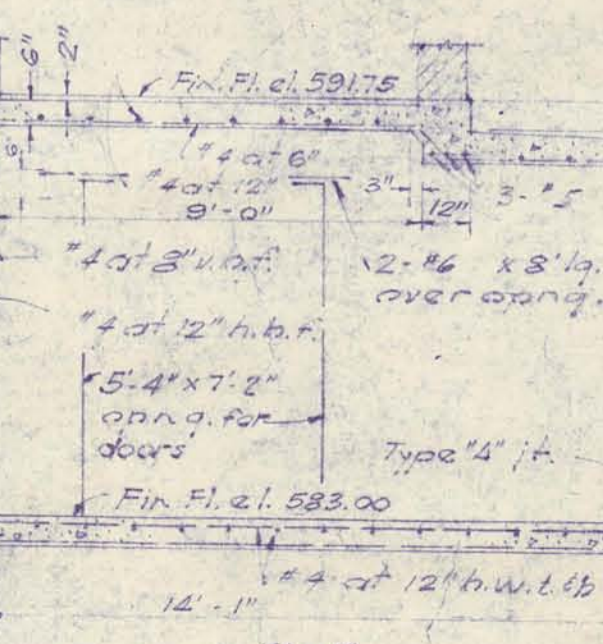 6"
2"
Fin. Fl. el. 591.75
6
#4 at 6"
#4 at 12"
9'-0"
3"
12"
3-#5
#4 at 8" v.o.f.
2-#6 x 8' lg.
over opng.
#4 at 12" h.b.f.
5'-4" x 7'-2"
opng. for
doors
Type "4" jt.
Fin. Fl. el. 583.00
#4 at 12" h.w.t. & b
14'-1"